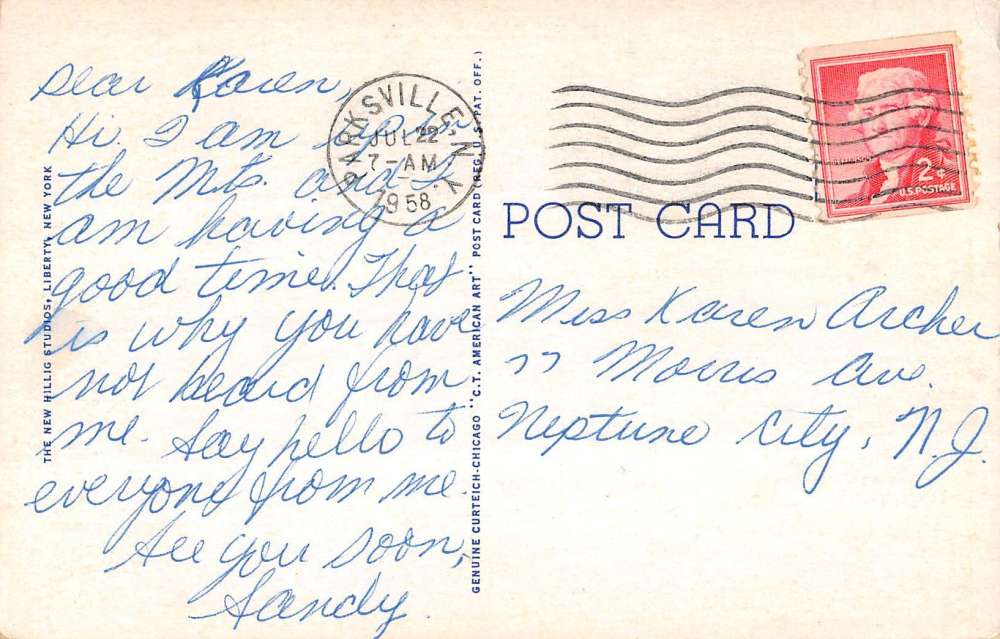 Dear Karen,
Hi. I am up in
the Mts. and I
am having a
good time. That
is why you have
not heard from
me. Say hello to
everyone from me.
See you soon,
Sandy.
THE NEW HILLIG STUDIOS, LIBERTY, NEW YORK
PARKSVILLE, N.Y.
JUL 22
7-AM
1958
GENUINE CURTEICH-CHICAGO "C.T. AMERICAN ART" POST CARD (REG. U.S. PAT. OFF.)
POST CARD
2¢
U.S. POSTAGE
Miss Karen Archer
77 Morris Ave.
Neptune City, N.J.